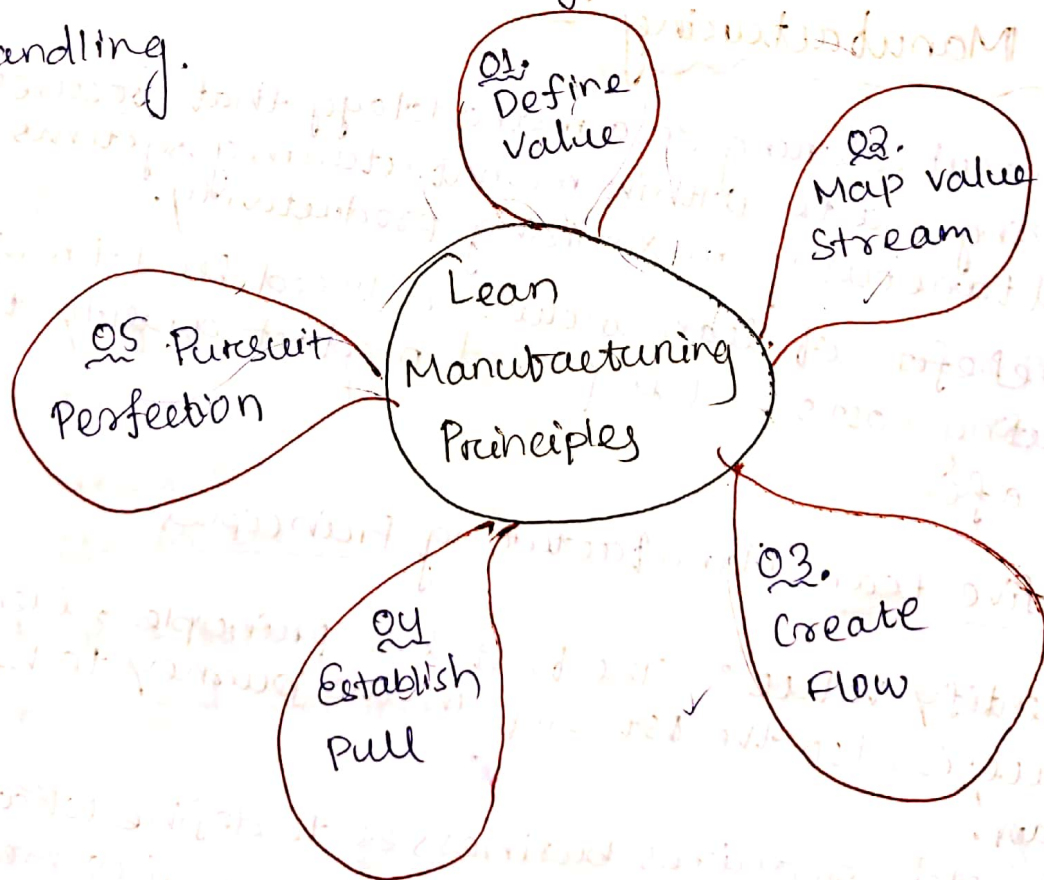 andling.
01.
Define
value
02.
Map value
Stream
Lean
Manufacturing
Principles
03.
Create
Flow
04
Establish
Pull
05 Pursuit
Perfection